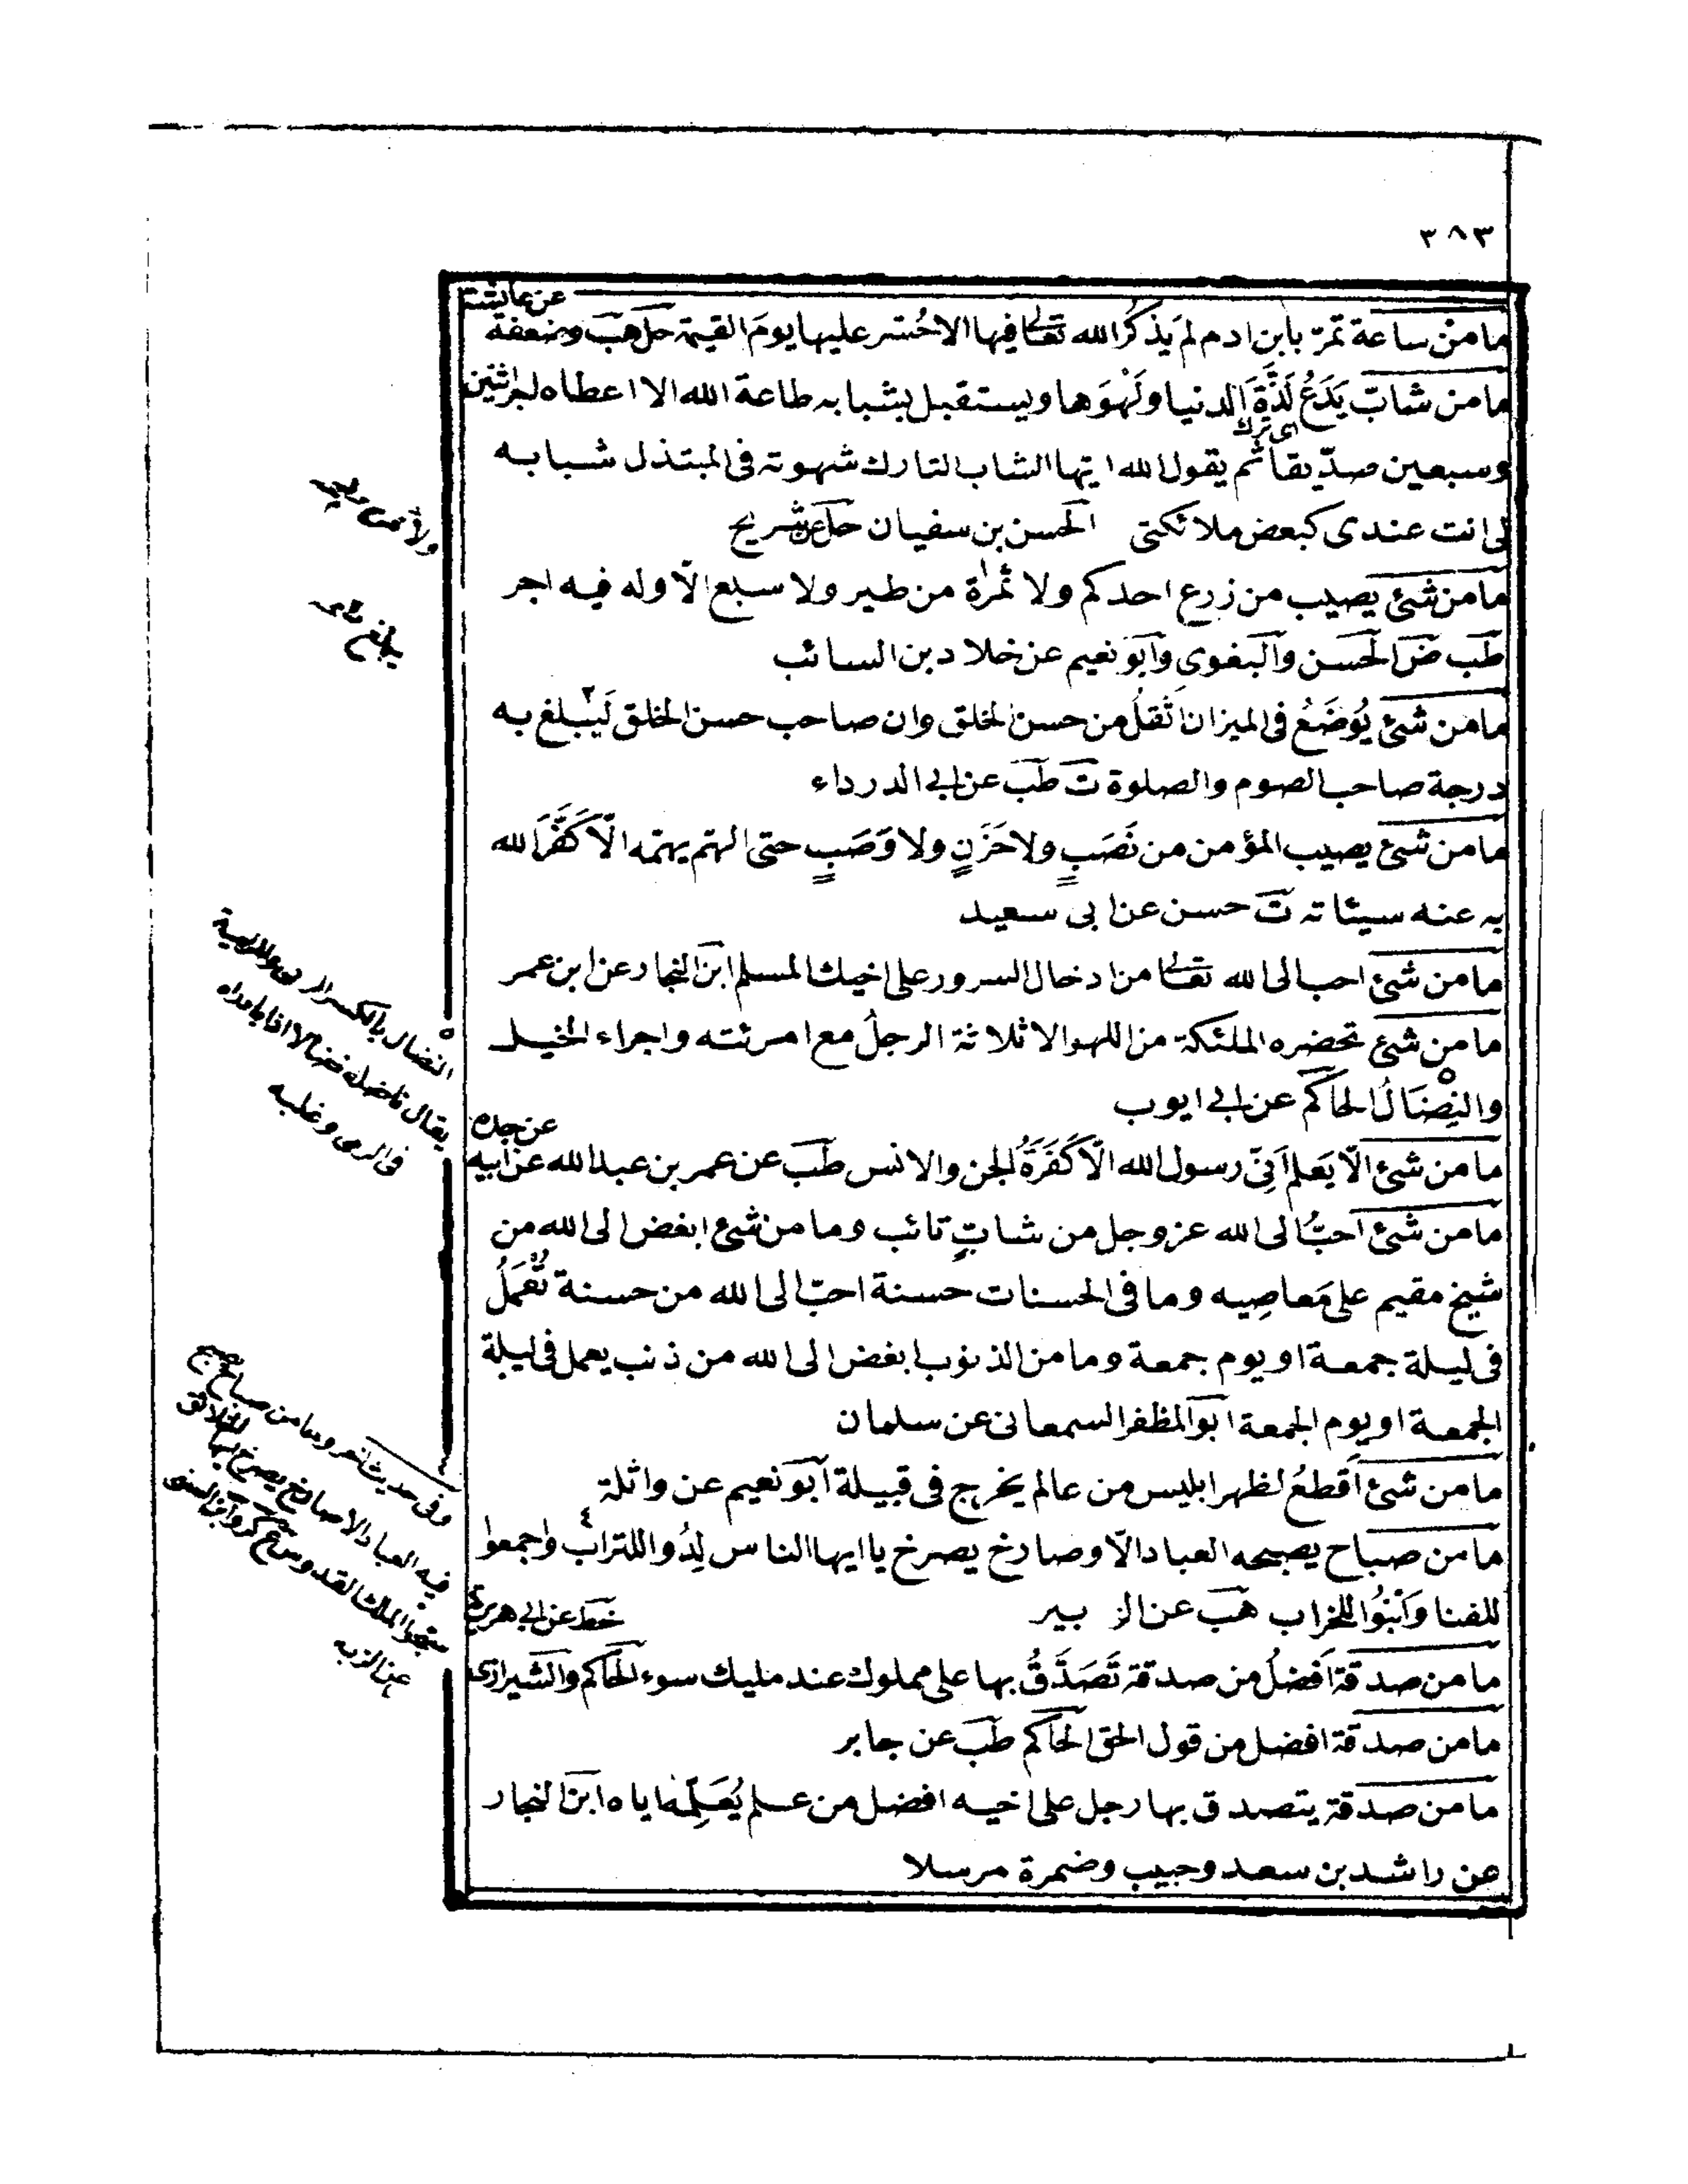 ٣٨٣
ما من ساعة تمرّ بابن ادم لم يذكر الله تعالى فيها الا حُسّر عليها يومَ القيمة حل هب وضعفه عن عايشة
ما من شابّ يَدَعُ لَذَّةَ الدنيا ولَهْوَها ويستقبل بشبابه طاعة الله الا اعطاه اجر اثنين
اى ترك
وسبعين صدّيقا ثم يقول الله ايها الشاب التارك شهوته فى المبتذل شبابه
لى انت عندى كبعض ملائكتى الحسن بن سفيان حل عن شريح
ما من شئ يصيب من زرع احدكم ولا ثمرة من طير ولا سبع الّا وله فيه اجر
طب ض الحسن والبغوى وابو نعيم عن خلاد بن السائب
ما من شئ يُوضَعُ فى الميزان اثقلُ من حسن الخلق وان صاحب حسن الخلق لَيَبلغ به
درجة صاحب الصوم والصلوة ت طب عن ابى الدرداء
ما من شئ يصيب المؤمن من نَصَبٍ ولا حَزَنٍ ولا وَصَبٍ حتى الهم يهمه الّا كَفَّرَ الله
به عنه سيئاته ت حسن عن ابى سعيد
ما من شئ احب الى الله تعالى من ادخال السرور على اخيك المسلم ابن النجار عن ابن عمر
ما من شئ تحضره الملئكة من اللهو الا ثلاثة الرجلُ مع امرئته واجراء الخيل
والنِضَالُ الحاكم عن ابى ايوب
ما من شئ الّا يَعلم اَنّى رسول الله الّا كَفَرَةُ الجن والانس طب عن عمر بن عبد الله عن ابيه عن جده
ما من شئ احبُّ الى الله عز وجل من شابٍّ تائب وما من شئ ابغض الى الله من
شيخ مقيم على مَعاصِيه وما فى الحسنات حسنة احبّ الى الله من حسنة تُعمَلُ
فى ليلة جمعة او يوم جمعة وما من الذنوب ابغض الى الله من ذنب يعمل فى ليلة
الجمعة او يوم الجمعة ابو المظفر السمعانى عن سلمان
ما من شئ اَقطعُ لظهر ابليس من عالم يخرج فى قبيلة ابو نعيم عن واثلة
ما من صباح يصبحه العباد الّا وصارخ يصرخ يا ايها الناس لِدُوا للتراب واجمعوا
للفنا وَابْنُوا للخراب هب عن الزبير
ما من صدقة اَفضلُ من صدقة تَصَدَّقُ بها على مملوك عند مليك سوء الحاكم والشيرازى خط عن ابى هريرة
ما من صدقة افضل من قول الحق الحاكم طب عن جابر
ما من صدقة يتصدق بها رجل على اخيه افضل من علم يُعَلِّمه اياه ابن النجار
عن راشد بن سعد وحبيب وضمرة مرسلا
النضال بالكسر
يقال ناضله نضالا اذا
فى الرمى وغلبه
وفى حديث اخر وما من صباح يصبح
فيه العباد الا صارخ يصرخ
الملك القدوس وابن السنى
عن الزبير